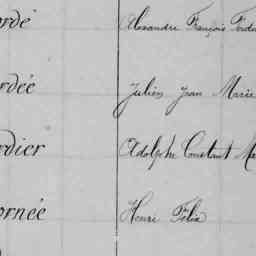 ordé Alexandre François Ferd
rdée Julien Jean Marie
rdier Adolphe Constant Ma
ornée Henri Félix